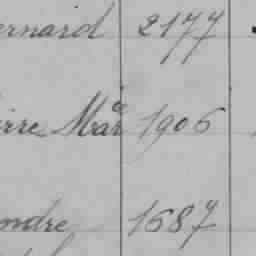 ernard 2177
ierre Mar 1906
ondre 1687